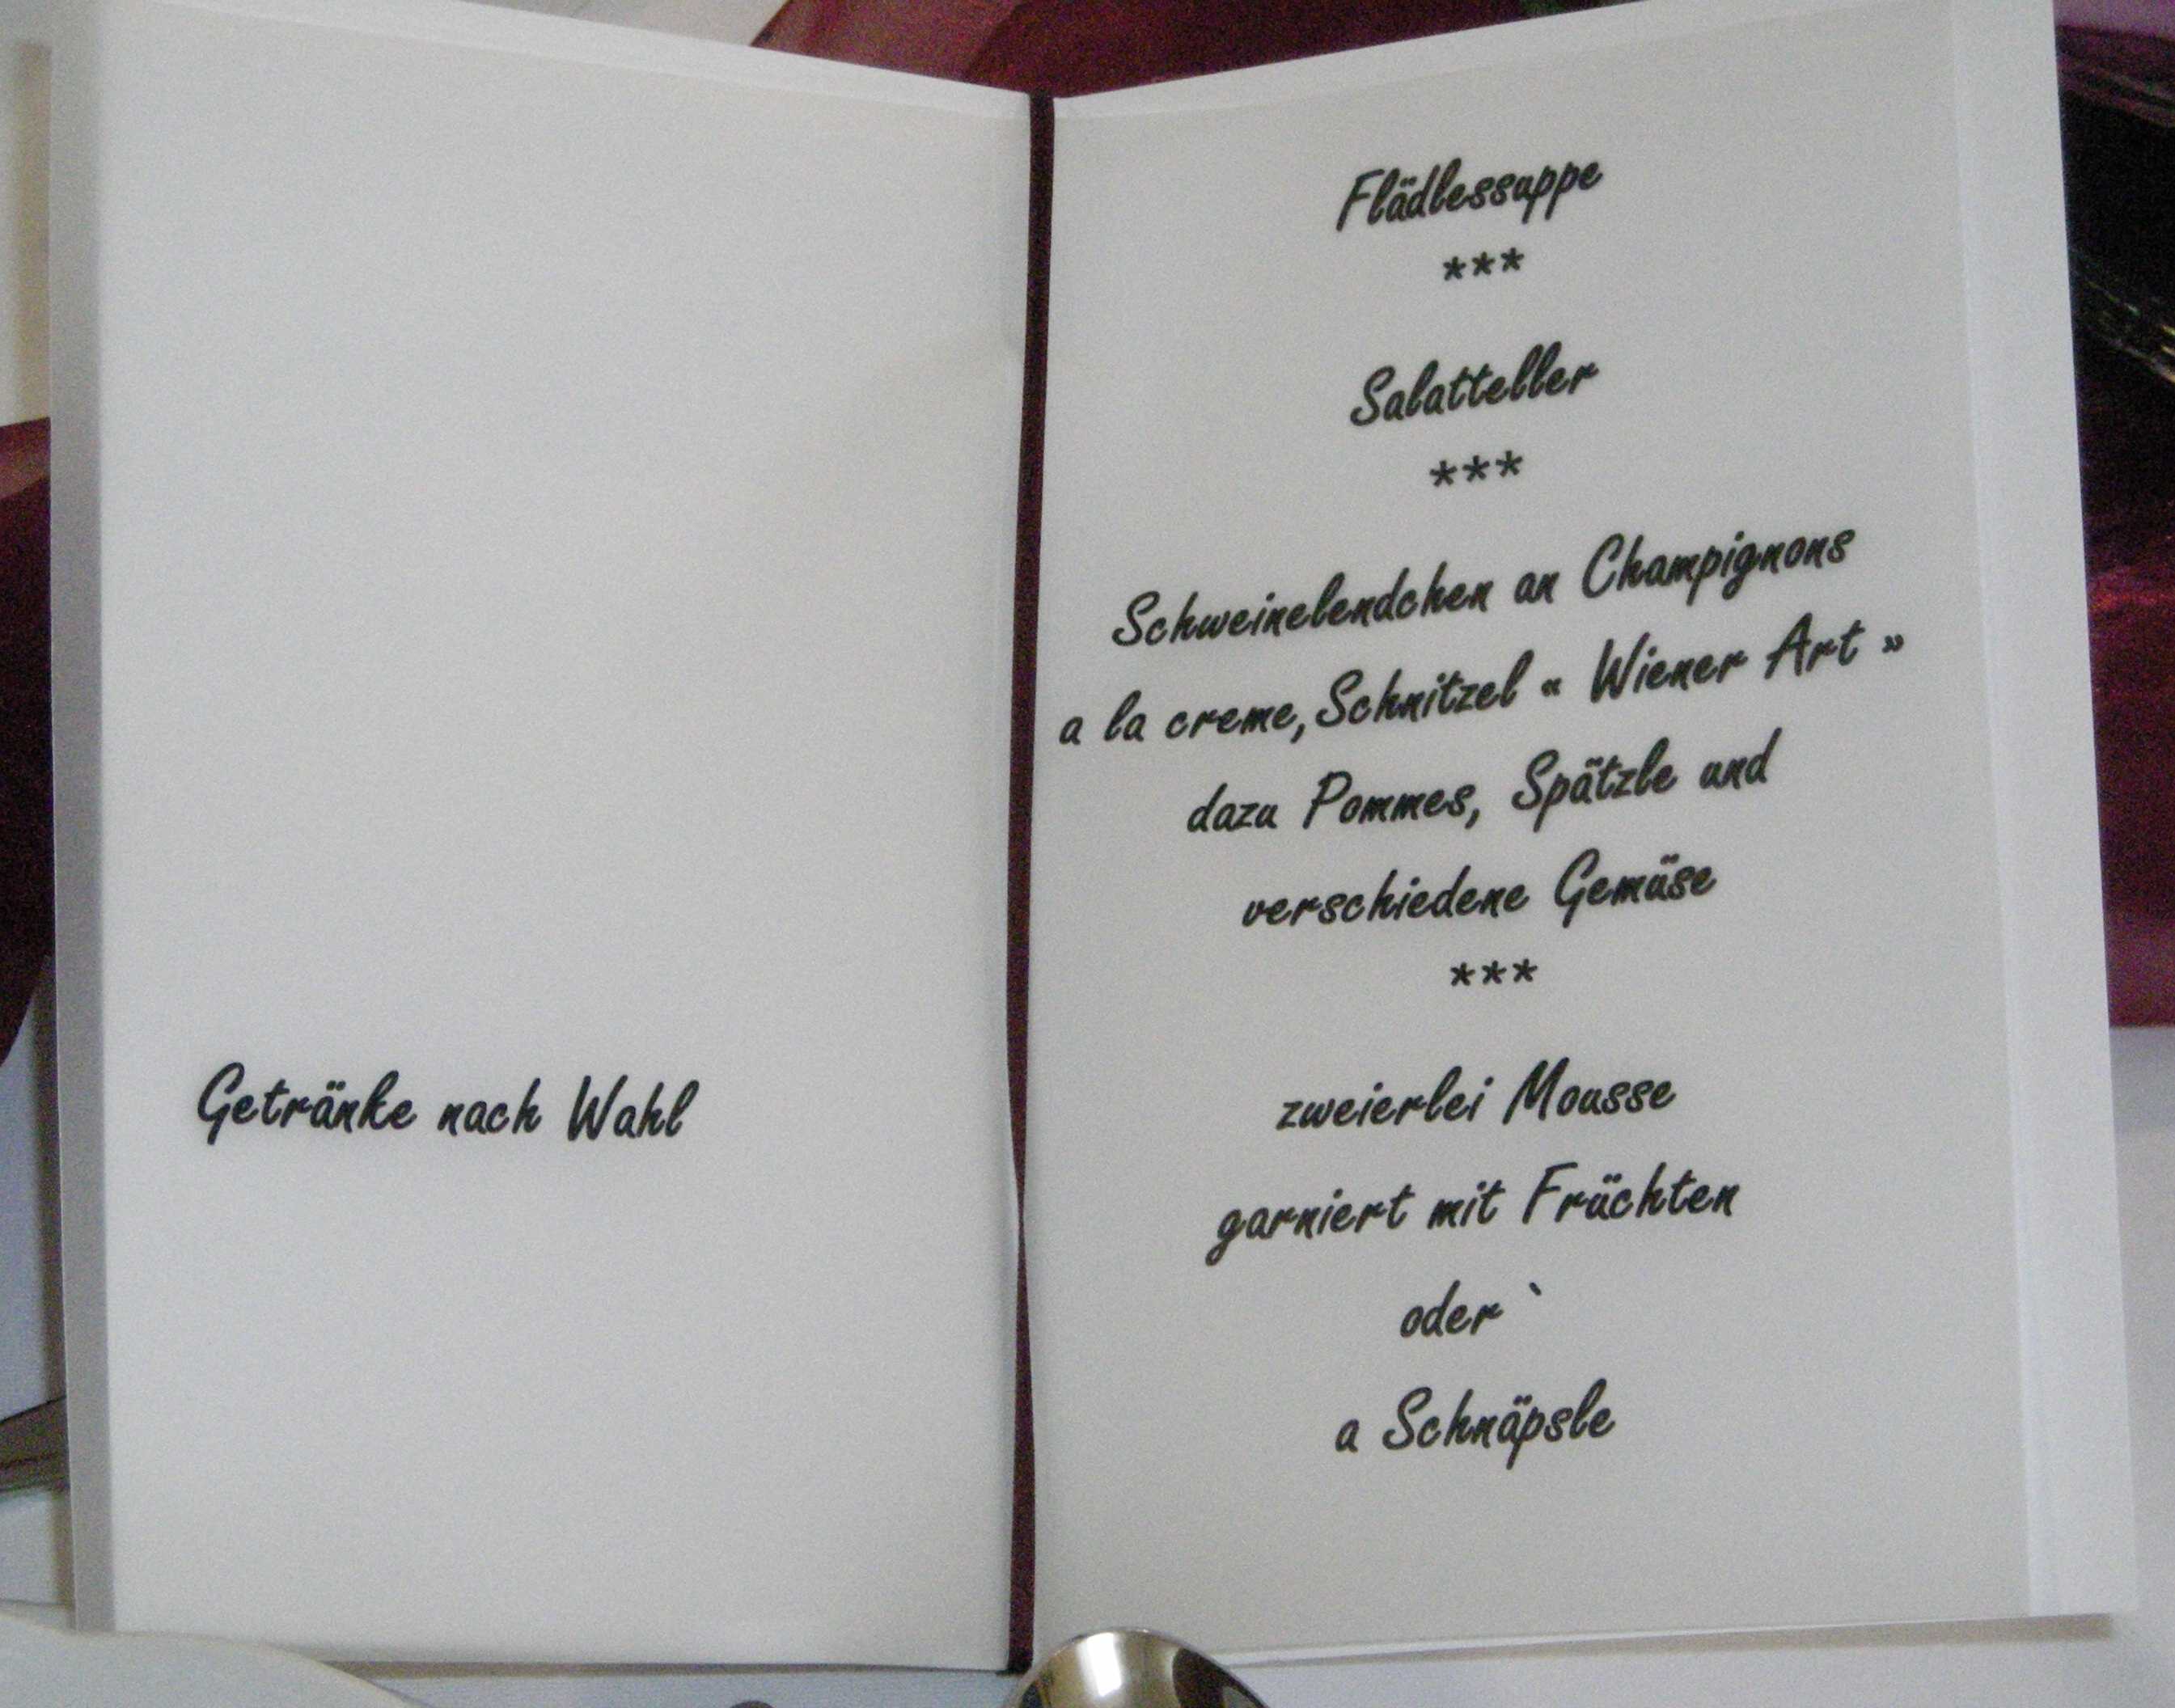 Getränke nach Wahl
Flädlessuppe
***
Salatteller
***
Schweinelendchen an Champignons
a la creme, Schnitzel « Wiener Art »
dazu Pommes, Spätzle und
verschiedene Gemüse
***
zweierlei Mousse
garniert mit Früchten
oder `
a Schnäpsle